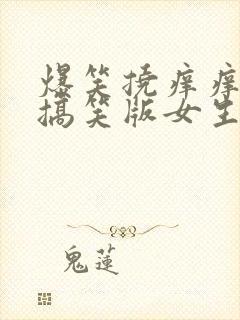 爆笑挠痒痒
搞笑版女生
鬼蓮